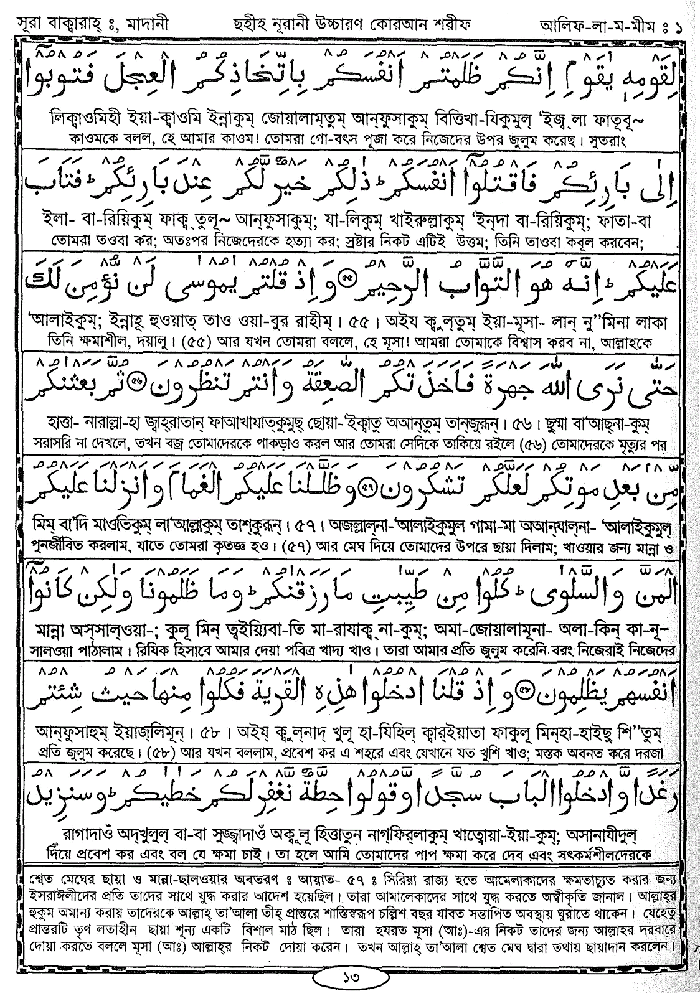 সূরা বাক্বারাহ্ ঃ, মাদানী ছহীহ নূরানী উচ্চারণ কোরআন শরীফ আলিফ-লা-ম-মীম ঃ ১
لِقَوْمِهٖ يٰقَوْمِ اِنَّكُمْ ظَلَمْتُمْ اَنْفُسَكُمْ بِاتِّخَاذِكُمُ الْعِجْلَ فَتُوْبُوْٓا
লিক্বাওমিহী ইয়া-ক্বাওমি ইন্নাকুম্ জোয়ালাম্তুম্ আন্ফুসাকুম্ বিত্তিখা-যিকুমুল্ 'ইজ্ব্লা ফাতূবূ~
কাওমকে বলল, হে আমার কাওম! তোমরা গো-বৎস পূজা করে নিজেদের উপর জুলুম করেছ। সুতরাং
اِلٰى بَارِئِكُمْ فَاقْتُلُوْٓا اَنْفُسَكُمْ ؕ ذٰلِكُمْ خَيْرٌ لَّكُمْ عِنْدَ بَارِئِكُمْ ؕ فَتَابَ
ইলা- বা-রিয়িকুম্ ফাক্ব্তুলূ~ আন্ফুসাকুম্; যা-লিকুম্ খাইরুল্লাকুম্ 'ইন্দা বা-রিয়িকুম্; ফাতা-বা
তোমরা তওবা কর; অতঃপর নিজেদেরকে হত্যা কর; স্রষ্টার নিকট এটিই উত্তম; তিনি তাওবা কবূল করবেন;
عَلَيْكُمْ ؕ اِنَّهٗ هُوَ التَّوَّابُ الرَّحِيْمُ ﴿۵۴﴾ وَاِذْ قُلْتُمْ يٰمُوْسٰى لَنْ نُّؤْمِنَ لَكَ
'আলাইকুম্; ইন্নাহূ হুওয়াত্ তাও ওয়া-বুর রাহীম্। ৫৫। অইয ক্বুল্তুম্ ইয়া-মূসা- লান্ নু''মিনা লাকা
তিনি ক্ষমাশীল, দয়ালু। (৫৫) আর যখন তোমরা বললে, হে মূসা! আমরা তোমাকে বিশ্বাস করব না, আল্লাহকে
حَتّٰى نَرَى اللّٰهَ جَهْرَةً فَاَخَذَتْكُمُ الصّٰعِقَةُ وَاَنْتُمْ تَنْظُرُوْنَ ﴿۵۵﴾ ثُمَّ بَعَثْنٰكُمْ
হাত্তা- নারাল্লা-হা জ্বাহ্রাতান্ ফাআখাযাত্কুমুছ্ ছোয়া-'ইক্বাতু অআন্তুম্ তান্জুরূন্। ৫৬। ছুম্মা বা'আছ্না-কুম্
সরাসরি না দেখলে, তখন বজ্র তোমাদেরকে পাকড়াও করল আর তোমরা সেদিকে তাকিয়ে রইলে (৫৬) তোমাদেরকে মৃত্যুর পর
مِّنْۢ بَعْدِ مَوْتِكُمْ لَعَلَّكُمْ تَشْكُرُوْنَ ﴿۵۶﴾ وَظَلَّلْنَا عَلَيْكُمُ الْغَمَامَ وَاَنْزَلْنَا عَلَيْكُمُ
মিম্ বা'দি মাওতিকুম্ লা'আল্লাকুম্ তাশ্কুরূন্। ৫৭। অজল্লাল্না-'আল্যাইকুমুল গামা-মা অআন্যাল্না- 'আলাইকুমুল্
পুনর্জীবিত করলাম, যাতে তোমরা কৃতজ্ঞ হও। (৫৭) আর মেঘ দিয়ে তোমাদের উপরে ছায়া দিলাম; খাওয়ার জন্য মান্না ও
الْمَنَّ وَالسَّلْوٰى ؕ كُلُوْا مِنْ طَيِّبٰتِ مَا رَزَقْنٰكُمْ ؕ وَمَا ظَلَمُوْنَا وَلٰكِنْ كَانُوْٓا
মান্না অস্সাল্ওয়া-; কুলূ মিন্ ত্বইয়্যিবা-তি মা-রাযাক্ব্না-কুম্; অমা-জোয়ালামূনা- অলা-কিন্ কা-নূ~
সালওয়া পাঠালাম। রিযিক হিসাবে আমার দেয়া পবিত্র খাদ্য খাও। তারা আমার প্রতি জুলুম করেনি বরং নিজেরাই নিজেদের
اَنْفُسَهُمْ يَظْلِمُوْنَ ﴿۵۷﴾ وَاِذْ قُلْنَا ادْخُلُوْا هٰذِهِ الْقَرْيَةَ فَكُلُوْا مِنْهَا حَيْثُ شِئْتُمْ
আন্ফুসাহুম্ ইয়াজ্লিমূন্। ৫৮। অইয্ ক্বুল্নাদ্ খুলূ হা-যিহিল্ ক্বার্ইয়াতা ফাকুলূ মিন্হা-হাইছু শি''তুম্
প্রতি জুলুম করেছে। (৫৮) আর যখন বললাম, প্রবেশ কর এ শহরে এবং যেখানে যত খুশি খাও; মস্তক অবনত করে দরজা
رَغَدًا وَّادْخُلُوا الْبَابَ سُجَّدًا وَّقُوْلُوْا حِطَّةٌ نَّغْفِرْ لَكُمْ خَطٰيٰكُمْ ؕ وَسَنَزِيْدُ
রাগাদাওঁ অদ্খুলুল্ বা-বা সুজ্জাদাওঁ অক্বূলূ হিত্তাতুন্ নাগ্ফির্লাকুম্ খাত্বোয়া-ইয়া-কুম্; অসানাযীদুল্
দিয়ে প্রবেশ কর এবং বল যে ক্ষমা চাই। তা হলে আমি তোমাদের পাপ ক্ষমা করে দেব এবং সৎকর্মশীলদেরকে
শ্বেত মেঘের ছায়া ও মান্না-ছালওয়ার অবতরণ ঃ আয়াত- ৫৭ ঃ সিরিয়া রাজ্য হতে আমেলাকাদের ক্ষমতাচ্যুত করার জন্য
ইসরাঈলীদের প্রতি তাদের সাথে যুদ্ধ করার আদেশ হয়েছিল। তারা আমালেকাদের সাথে যুদ্ধ করতে অস্বীকৃতি জানাল। আল্লাহর
হুকুম অমান্য করায় তাদেরকে আল্লাহ্ তা'আলা তীহ্ প্রান্তরে শাস্তিস্বরূপ চল্লিশ বছর যাবত সন্তাপিত অবস্থায় ঘুরাতে থাকেন। যেহেতু
প্রান্তরটি তৃণ লতাহীন ছায়া শূন্য একটি বিশাল মাঠ ছিল। তারা হযরত মূসা (আঃ)-এর নিকট তাদের জন্য আল্লাহর দরবারে
দোয়া করতে বললে মূসা (আঃ) আল্লাহর নিকট দোয়া করেন। তখন আল্লাহ্ তা'আলা শ্বেত মেঘ দ্বারা তথায় ছায়াদান করলেন।
১৩